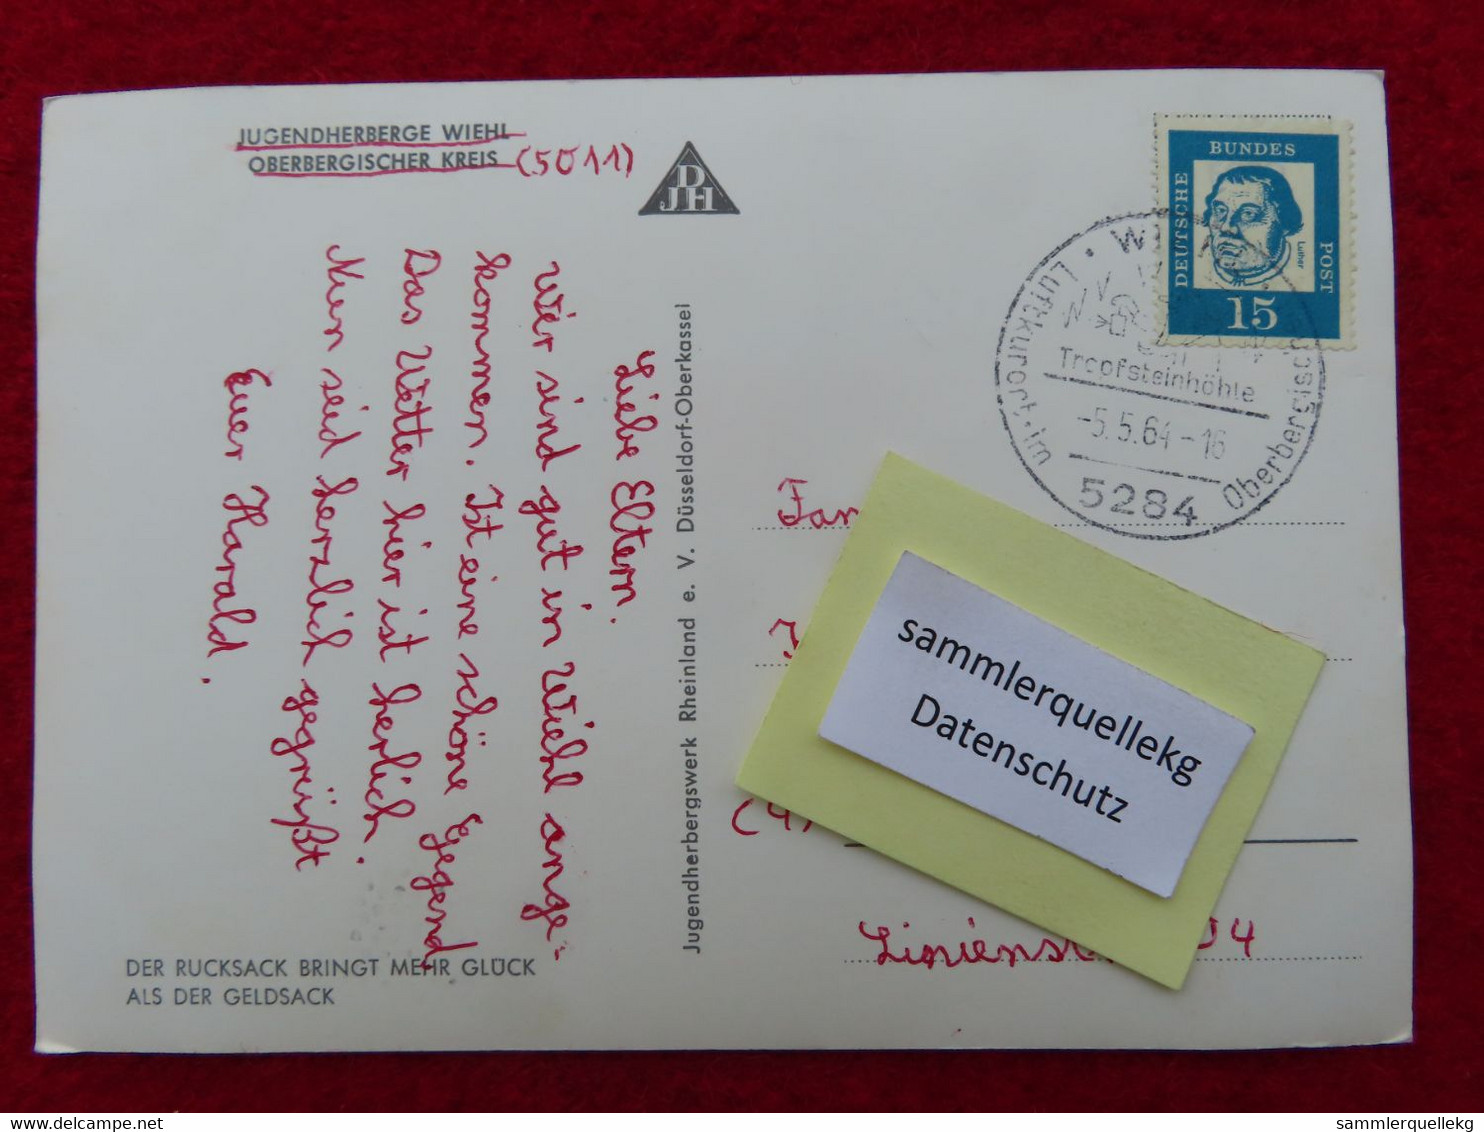 JUGENDHERBERGE WIEHL
OBERBERGISCHER KREIS (5011)
DJH
Liebe Eltern.
Wir sind gut in Wiehl ange-
kommen. Ist eine schöne Gegend,
Das Wetter hier ist herlich.
Nun seid herzlich gegrüßt
Euer Harald.
DER RUCKSACK BRINGT MEHR GLÜCK
ALS DER GELDSACK
Jugendherbergswerk Rheinland e. V. Düsseldorf-Oberkassel
DEUTSCHE BUNDES POST
Luther
15
Luftkurort · im Oberbergischen
Tropfsteinhöhle
-5.5.64-16
5284
Fam
sammlerquellekg
Datenschutz
(4)
delcampe.net
sammlerquellekg